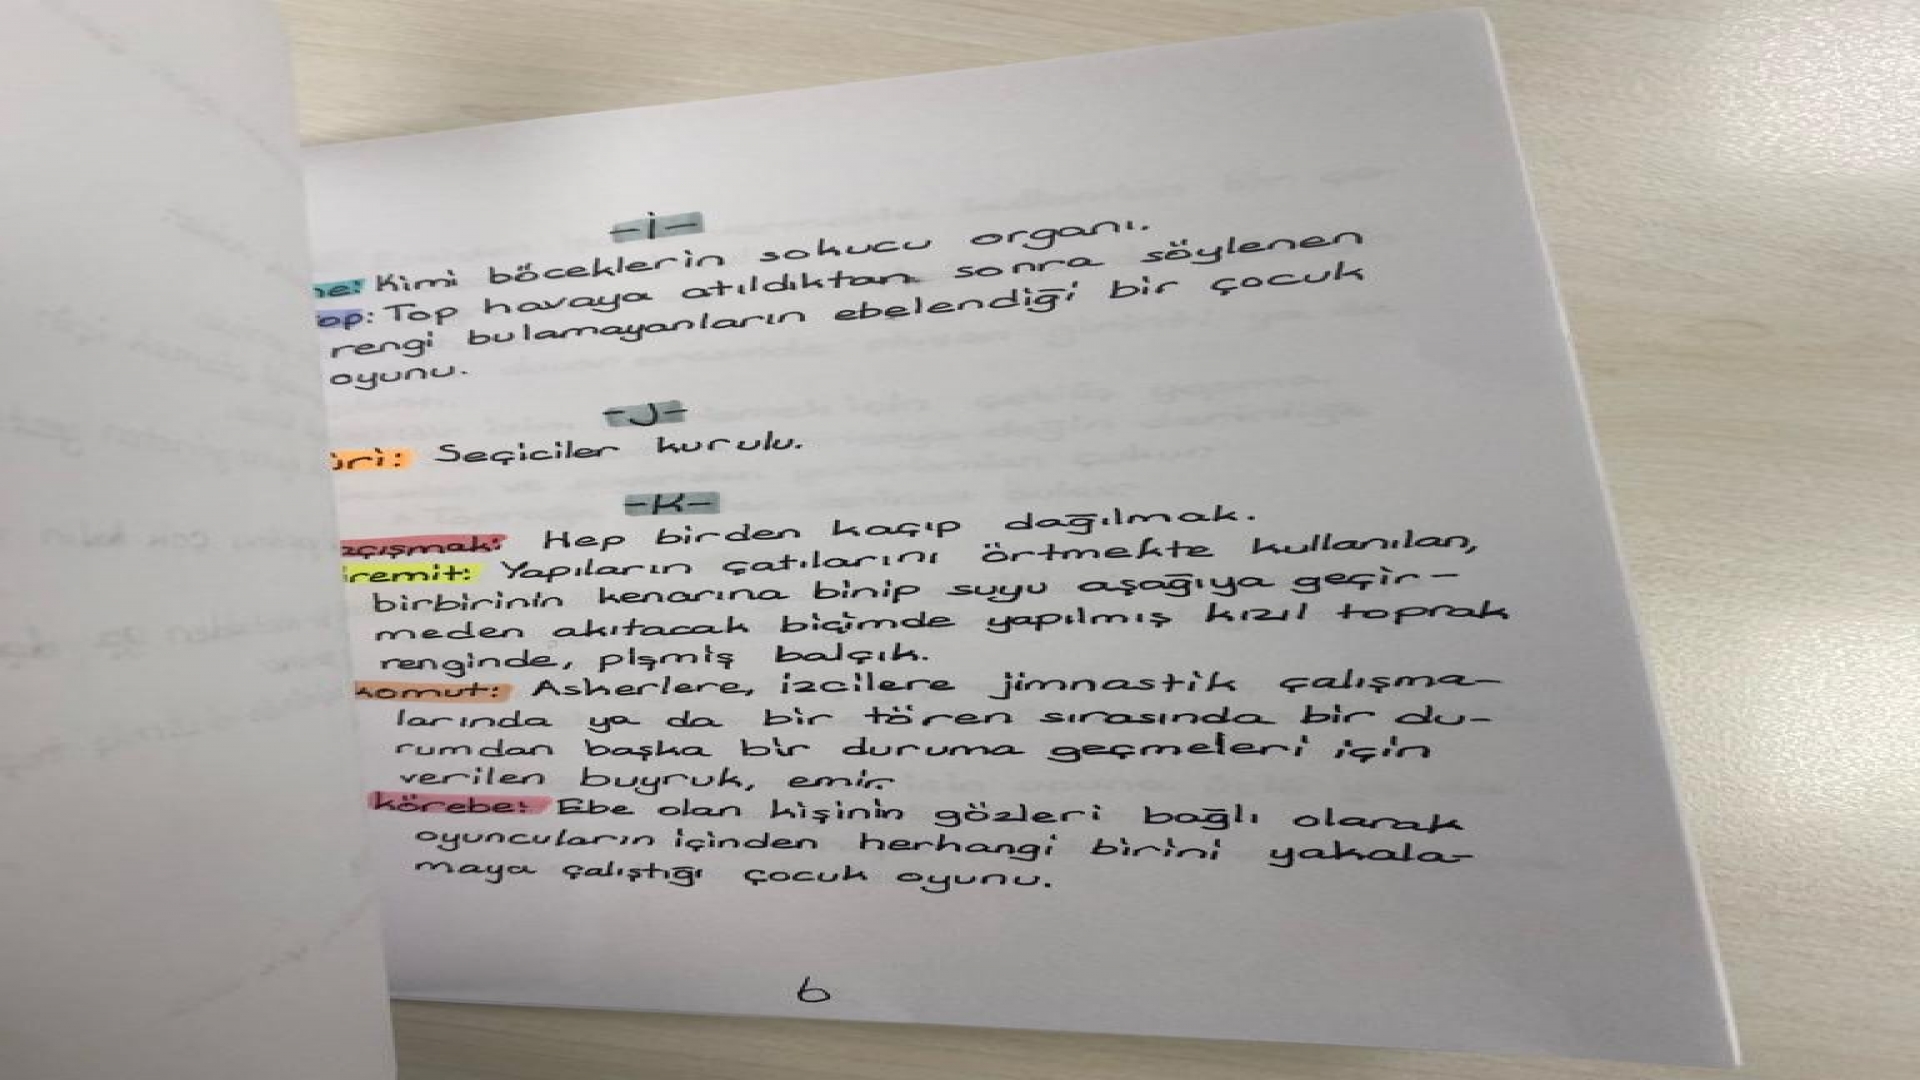 -İ-
ne: Kimi böceklerin sokucu organı.
op: Top havaya atıldıktan sonra söylenen
rengi bulamayanların ebelendiği bir çocuk
oyunu.
-J-
üri: Seçiciler kurulu.
-K-
açışmak: Hep birden kaçıp dağılmak.
iremit: Yapıların çatılarını örtmekte kullanılan,
birbirinin kenarına binip suyu aşağıya geçir-
meden akıtacak biçimde yapılmış kızıl toprak
renginde, pişmiş balçık.
komut: Askerlere, izcilere jimnastik çalışma-
larında ya da bir tören sırasında bir du-
rumdan başka bir duruma geçmeleri için
verilen buyruk, emir.
körebe: Ebe olan kişinin gözleri bağlı olarak
oyuncuların içinden herhangi birini yakala-
maya çalıştığı çocuk oyunu.
6